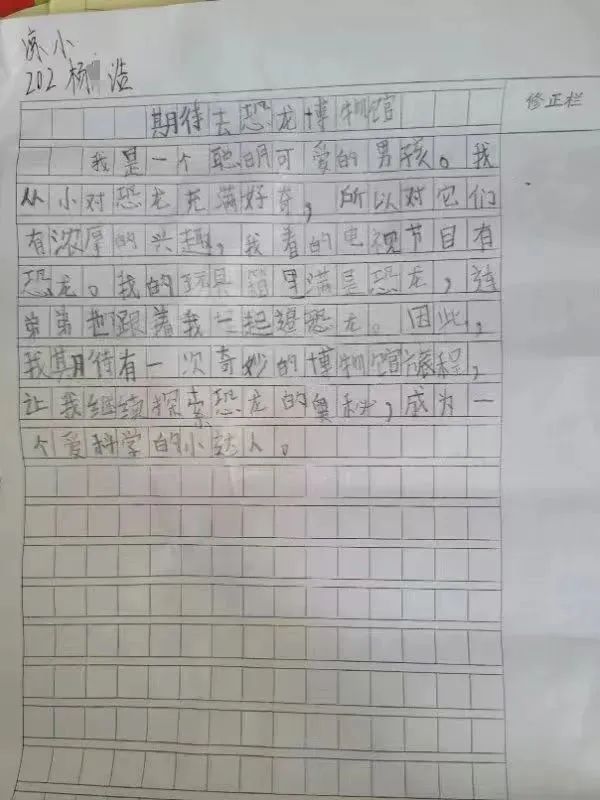 海小
202 杨 浩
修正栏
期待去恐龙博物馆
我是一个聪明可爱的男孩。我
从小对恐龙充满好奇，所以对它们
有浓厚的兴趣，我看的电视节目有
恐龙。我的玩具箱里满是恐龙，连
弟弟也跟着我一起追恐龙。因此，
我期待有一次奇妙的博物馆旅程，
让我继续探索恐龙的奥秘，成为一
个爱科学的小达人。